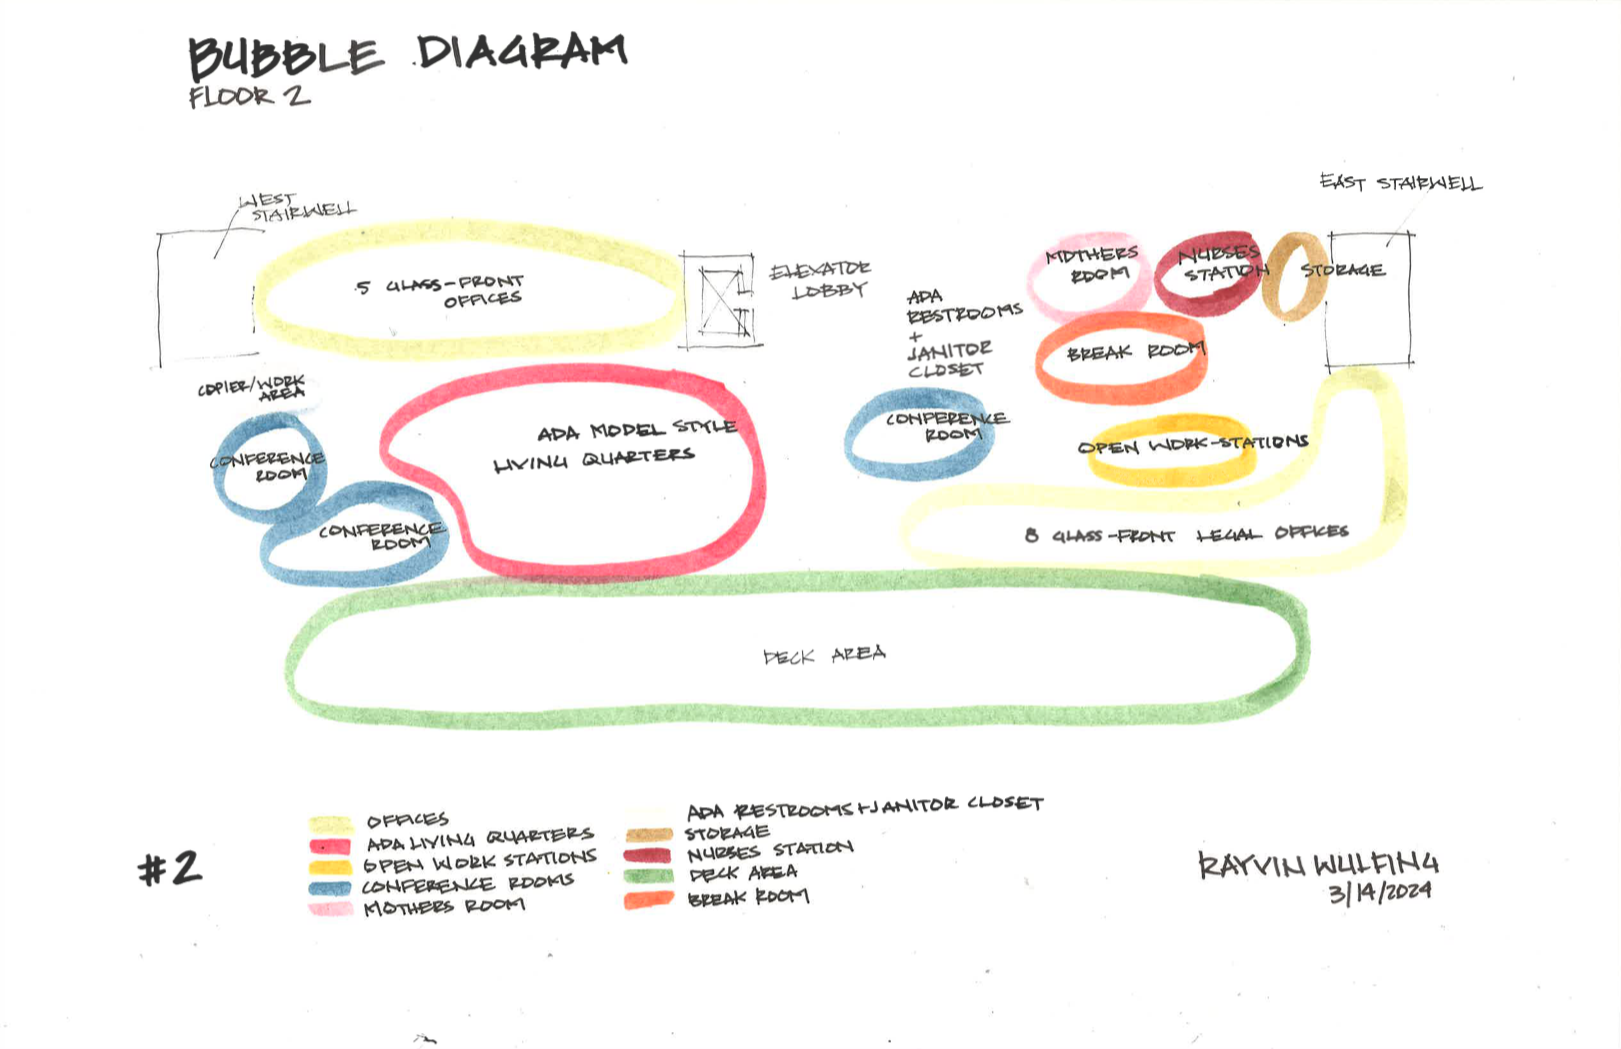 BUBBLE DIAGRAM
FLOOR 2
WEST
STAIRWELL
EAST STAIRWELL
5 GLASS-FRONT
OFFICES
ELEVATOR
LOBBY
ADA
RESTROOMS
+
JANITOR
CLOSET
MOTHERS
ROOM
NURSES
STATION
STORAGE
BREAK ROOM
COPIER/WORK
AREA
CONFERENCE
ROOM
CONFERENCE
ROOM
ADA MODEL STYLE
LIVING QUARTERS
CONFERENCE
ROOM
OPEN WORK-STATIONS
8 GLASS-FRONT LEGAL OFFICES
DECK AREA
#2
OFFICES
ADA LIVING QUARTERS
OPEN WORK STATIONS
CONFERENCE ROOMS
MOTHERS ROOM
ADA RESTROOMS + JANITOR CLOSET
STORAGE
NURSES STATION
DECK AREA
BREAK ROOM
RAYVIN WULFING
3/14/2024